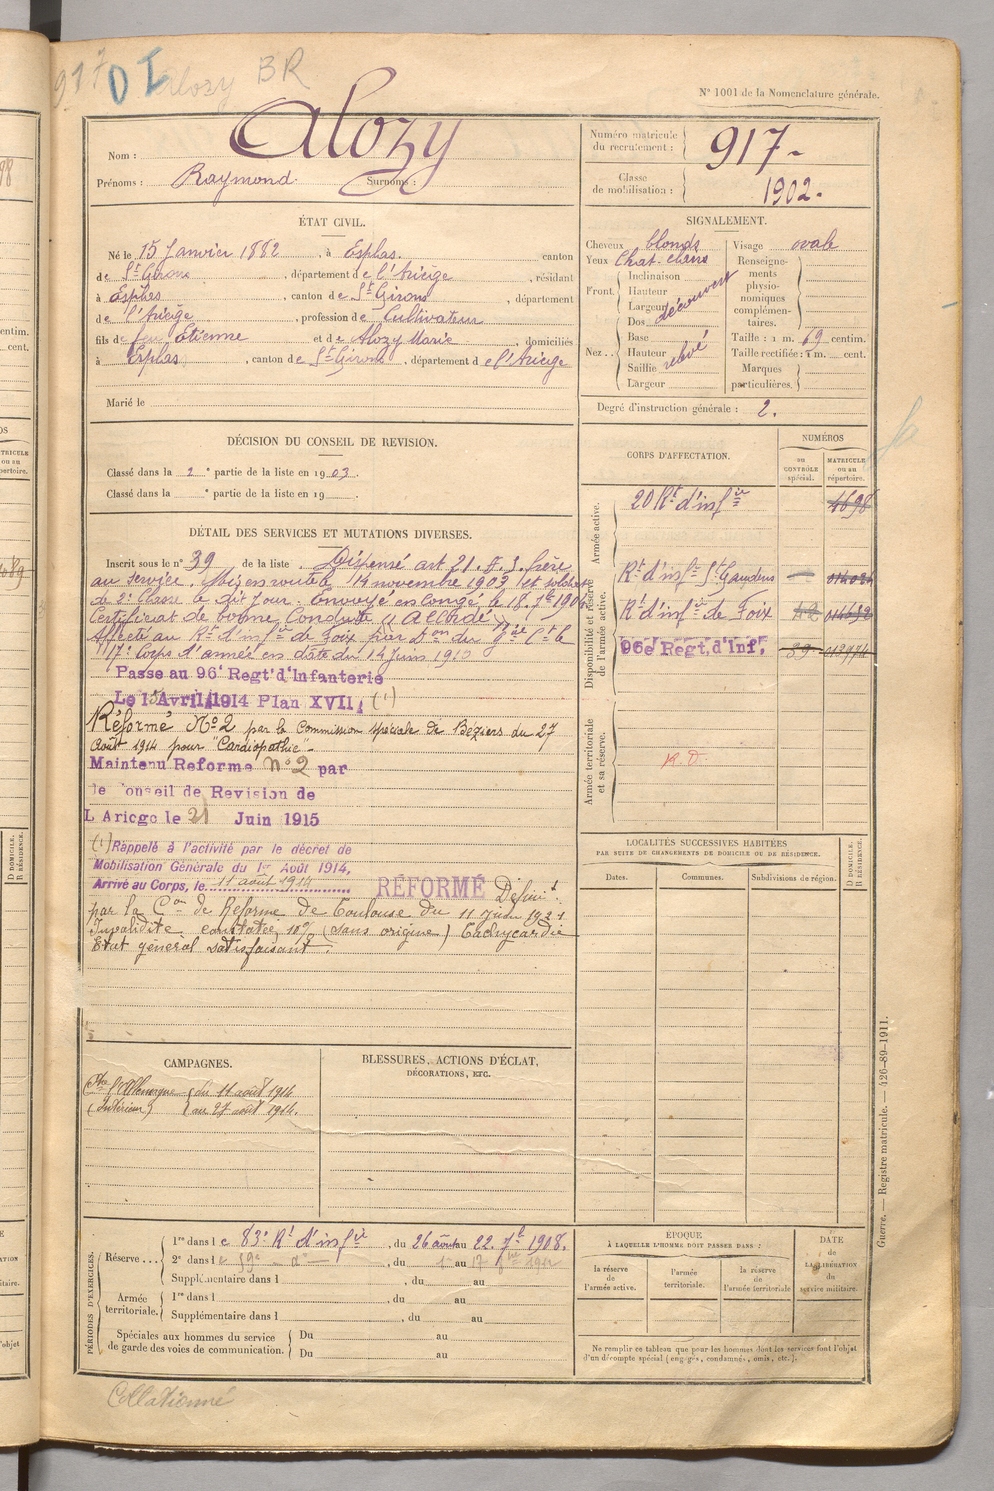 917 D I Alozy BR
N° 1001 de la Nomenclature générale.
Nom : Alozy
Prénoms : Raymond Surnoms :
Numéro matricule du recrutement : 917
Classe de mobilisation : 1902
ÉTAT CIVIL.
Né le 15 Janvier 1882, à Esplas. canton
de St Girons, département de l'Ariège, résidant
à Esplas, canton de St Girons, département
de l'Ariège, profession de Cultivateur
fils de feu Etienne et de Alozy Marie domiciliés
à Esplas, canton de St Girons, département de l'Ariège
Marié le
SIGNALEMENT.
Cheveux blonds
Yeux Chat. clairs
Front. Inclinaison
Hauteur
Largeur découvert
Nez.. Dos
Base
Hauteur relevé
Saillie
Largeur
Visage ovale
Renseignements physionomiques complémentaires.
Taille : 1 m. 69 centim.
Taille rectifiée : 1 m. cent.
Marques particulières.
Degré d'instruction générale : 2.
DÉCISION DU CONSEIL DE REVISION.
Classé dans la 2e partie de la liste en 1903.
Classé dans la e partie de la liste en 19 .
DÉTAIL DES SERVICES ET MUTATIONS DIVERSES.
Inscrit sous le n° 39 de la liste. Dispensé art 21. frère
au service. Mis en route le 14 novembre 1903 et soldat
de 2e Classe le dit jour. Envoyé en congé le 18. 7bre 1904
Certificat de bonne Conduite "Accordé"
Affecté au Rt d'infie de Foix par Don du Gal Ct le
17e Corps d'armée en date du 14 Juin 1910
Passe au 96e Regt d'Infanterie
Le 1er Avril 1914 Plan XVII. (1)
Réformé No 2 par la Commission spéciale de Béziers du 27
Août 1914 pour "Cardiopathie"
Maintenu Reforme n° 2 par
le Conseil de Revision de
L Ariege le 21 Juin 1915
(1) Rappelé à l'activité par le décret de
Mobilisation Générale du 1er Août 1914,
Arrivé au Corps, le 11 août 1914
RÉFORMÉ Définit.
par la Con de Réforme de Toulouse du 11 Juin 1921
Invalidité constatée 10% (sans origine) Tachycardie
Etat général satisfaisant.
CORPS D'AFFECTATION.
NUMÉROS
au CONTRÔLE spécial.
MATRICULE ou au répertoire.
Armée active.
20 Rt d'infie 4698
Disponibilité et réserve de l'armée active.
Rt d'infie St Gaudens
Rt d'infie de Foix
96e Regt. d'Inf.
Armée territoriale et sa réserve.
R.D.
LOCALITÉS SUCCESSIVES HABITÉES
PAR SUITE DE CHANGEMENTS DE DOMICILE OU DE RÉSIDENCE.
Dates.
Communes.
Subdivisions de région.
D DOMICILE.
R RÉSIDENCE.
CAMPAGNES.
Cre l'Allemagne du 11 août 1914
(Intérieur) au 27 août 1914.
BLESSURES, ACTIONS D'ÉCLAT,
DÉCORATIONS, ETC.
PÉRIODES D'EXERCICES.
Réserve...
1re dans le 83e Rt d'infie, du 26 août au 22. 7bre 1908.
2e dans le 59e do, du 1 au 17 1912
Supplémentaire dans l , du au
Armée territoriale.
1re dans l , du au
Supplémentaire dans l , du au
Spéciales aux hommes du service de garde des voies de communication.
Du au
Du au
ÉPOQUE
À LAQUELLE L'HOMME DOIT PASSER DANS :
la réserve de l'armée active.
l'armée territoriale.
la réserve de l'armée territoriale
DATE de LA LIBÉRATION du service militaire.
Ne remplir ce tableau que pour les hommes dont les services font l'objet
d'un décompte spécial (engagés, condamnés, omis, etc.).
Guerre. — Registre matricule. — 426-89-1911.
Collationné